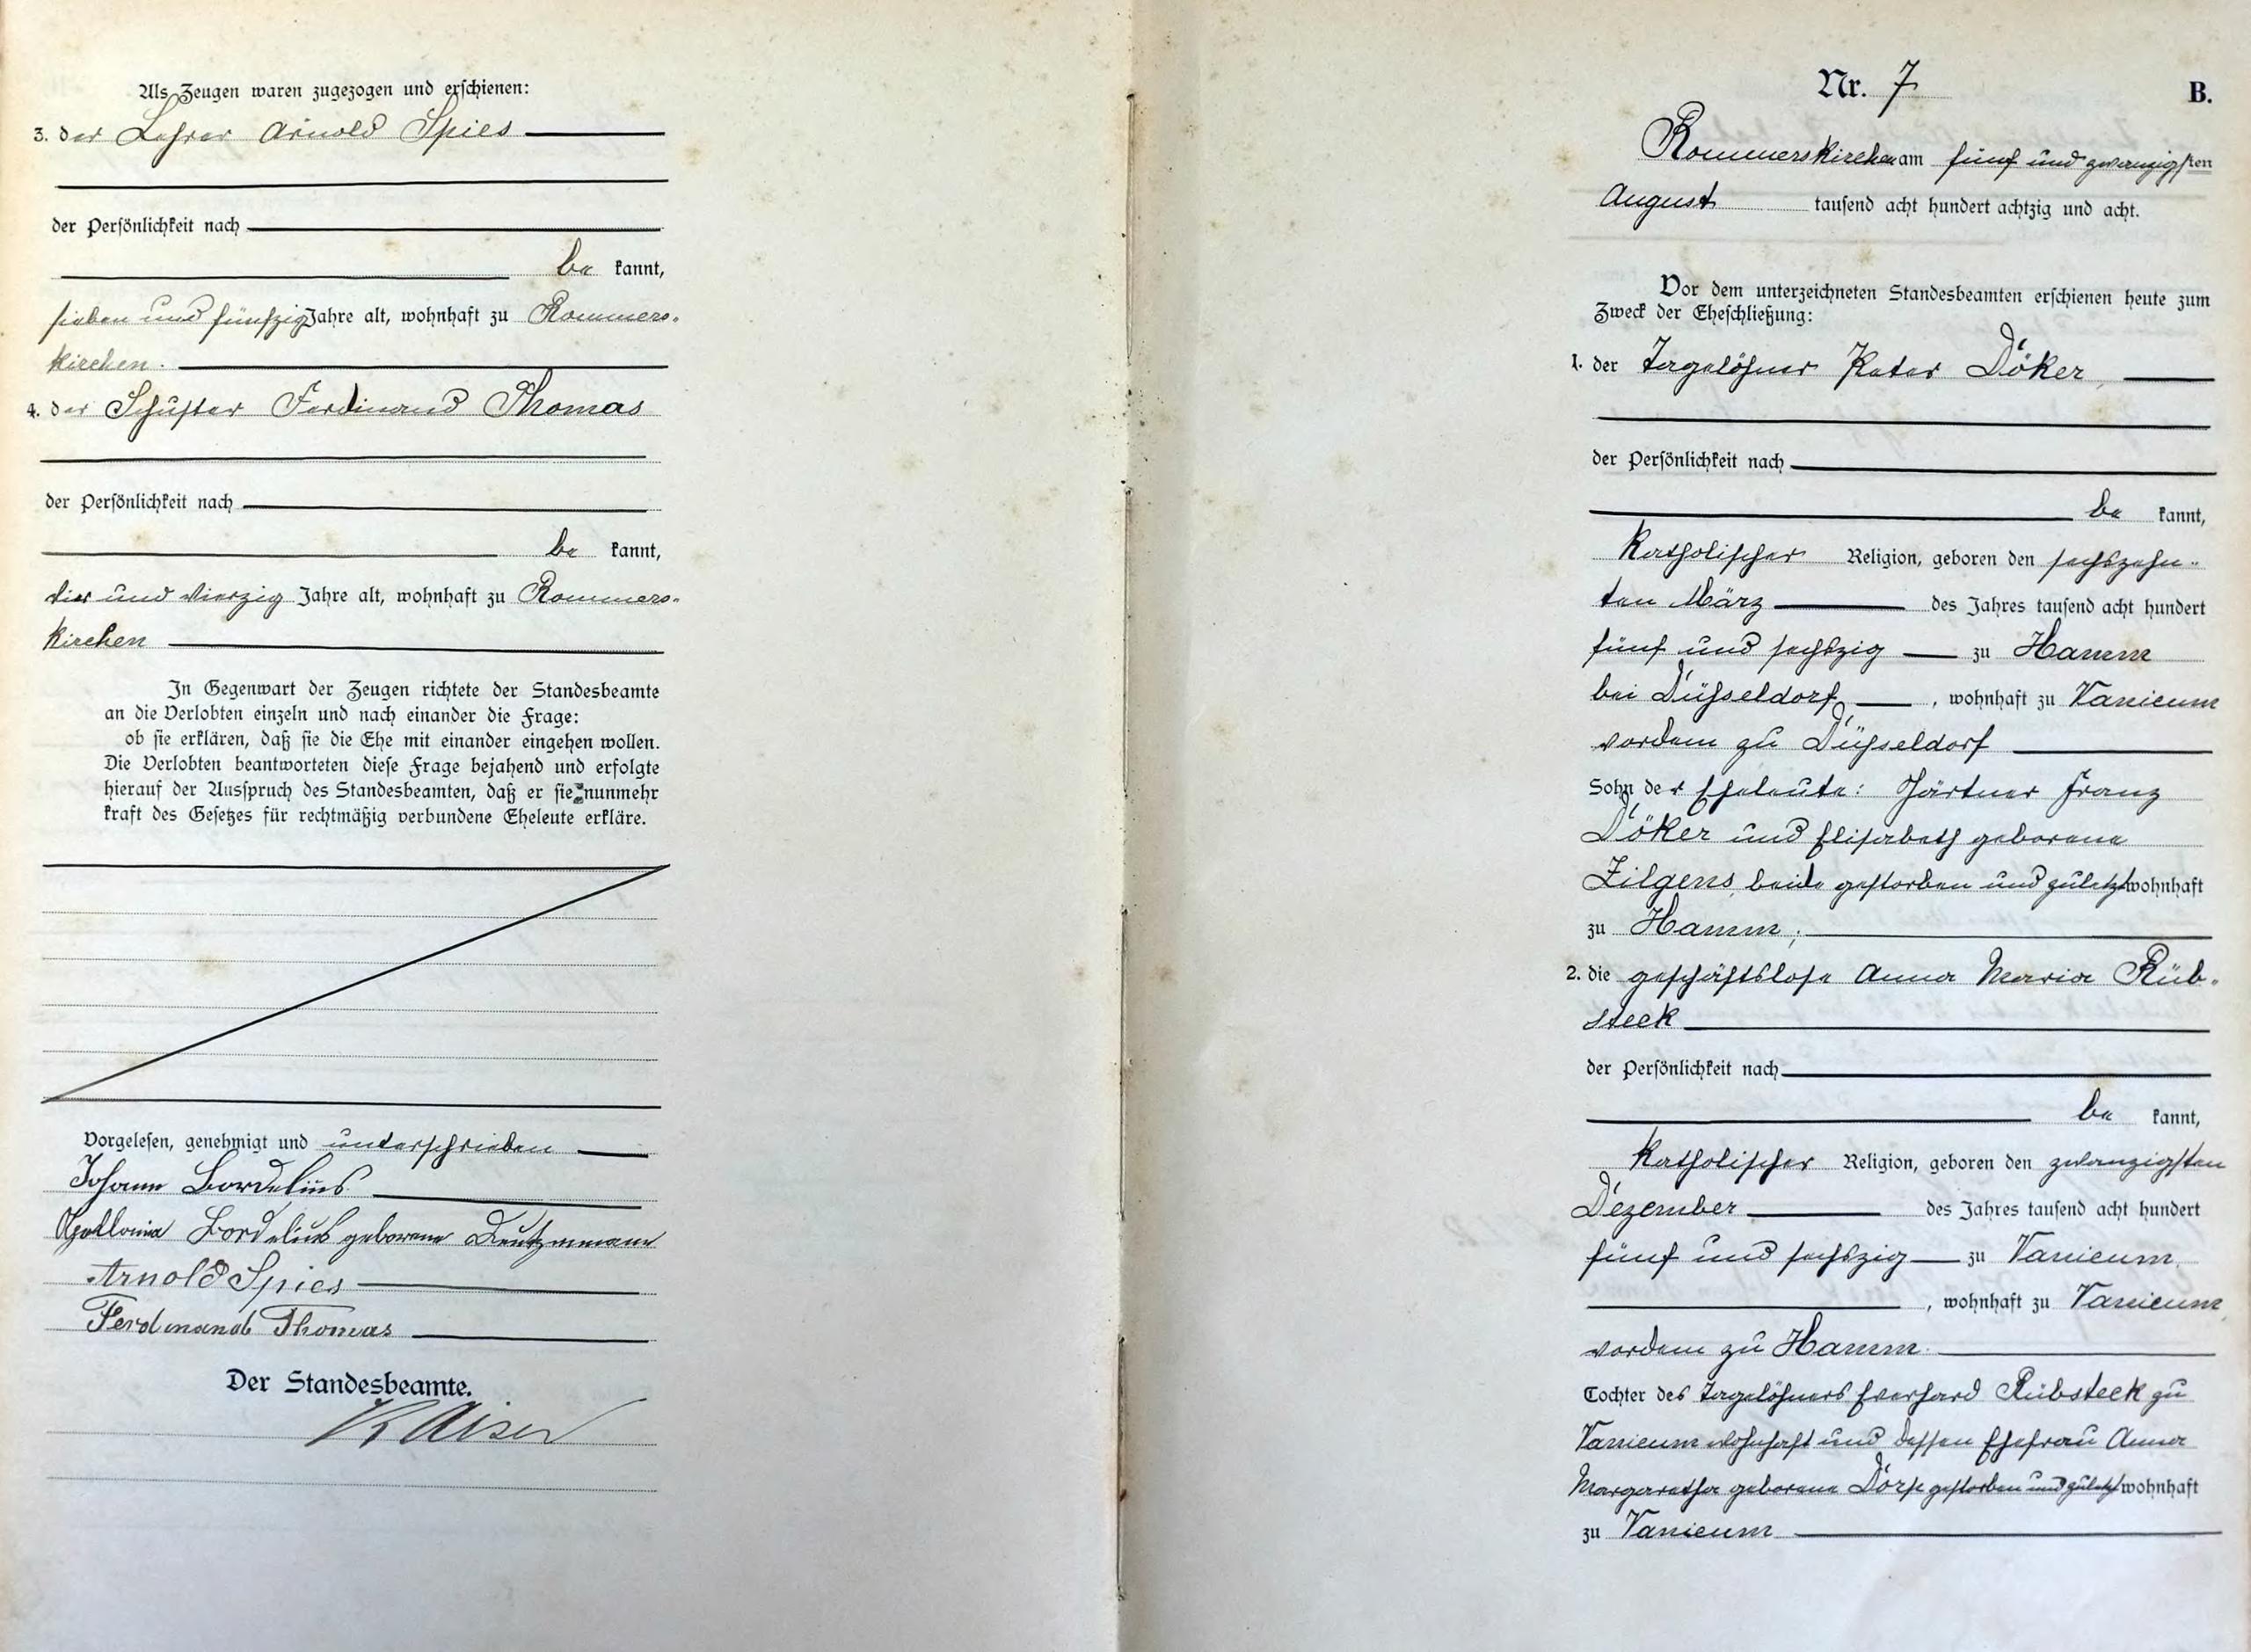 Als Zeugen waren zugezogen und erschienen:
3. der Lehrer Arnold Spies
der Persönlichkeit nach
be kannt,
sieben und fünfzig Jahre alt, wohnhaft zu Rommers-
kirchen.
4. der Schuster Ferdinand Thomas
der Persönlichkeit nach
be kannt,
vier und vierzig Jahre alt, wohnhaft zu Rommers-
kirchen
In Gegenwart der Zeugen richtete der Standesbeamte
an die Verlobten einzeln und nach einander die Frage:
ob sie erklären, daß sie die Ehe mit einander eingehen wollen.
Die Verlobten beantworteten diese Frage bejahend und erfolgte
hierauf der Ausspruch des Standesbeamten, daß er sie nunmehr
kraft des Gesetzes für rechtmäßig verbundene Eheleute erkläre.
Vorgelesen, genehmigt und unterschrieben
Johann Bordelius
Apollonia Bordelius geborene
Arnold Spies
Ferdinand Thomas
Der Standesbeamte.
Kaiser
Nr. 7 B.
Rommerskirchen am fünf und zwanzigsten
August tausend acht hundert achtzig und acht.
Vor dem unterzeichneten Standesbeamten erschienen heute zum
Zweck der Eheschließung:
1. der Tagelöhner Peter Döker
der Persönlichkeit nach
be kannt,
katholischer Religion, geboren den sechszehn-
ten März des Jahres tausend acht hundert
fünf und sechszig zu Hamm
bei Düsseldorf, wohnhaft zu Vanicum
vordem zu Düsseldorf
Sohn der Eheleute: Gärtner Franz
Döker und Elisabeth geborene
Zilgens, beide gestorben und zuletzt wohnhaft
zu Hamm;
2. die geschäftslose Anna Maria Rüb-
steck
der Persönlichkeit nach
be kannt,
katholischer Religion, geboren den zwanzigsten
Dezember des Jahres tausend acht hundert
fünf und sechszig zu Vanicum
, wohnhaft zu Vanicum,
vordem zu Hamm.
Tochter des Tagelöhners Everhard Rübsteck zu
Vanicum wohnhaft und dessen Ehefrau Anna
Margaretha geborene gestorben und zuletzt wohnhaft
zu Vanicum